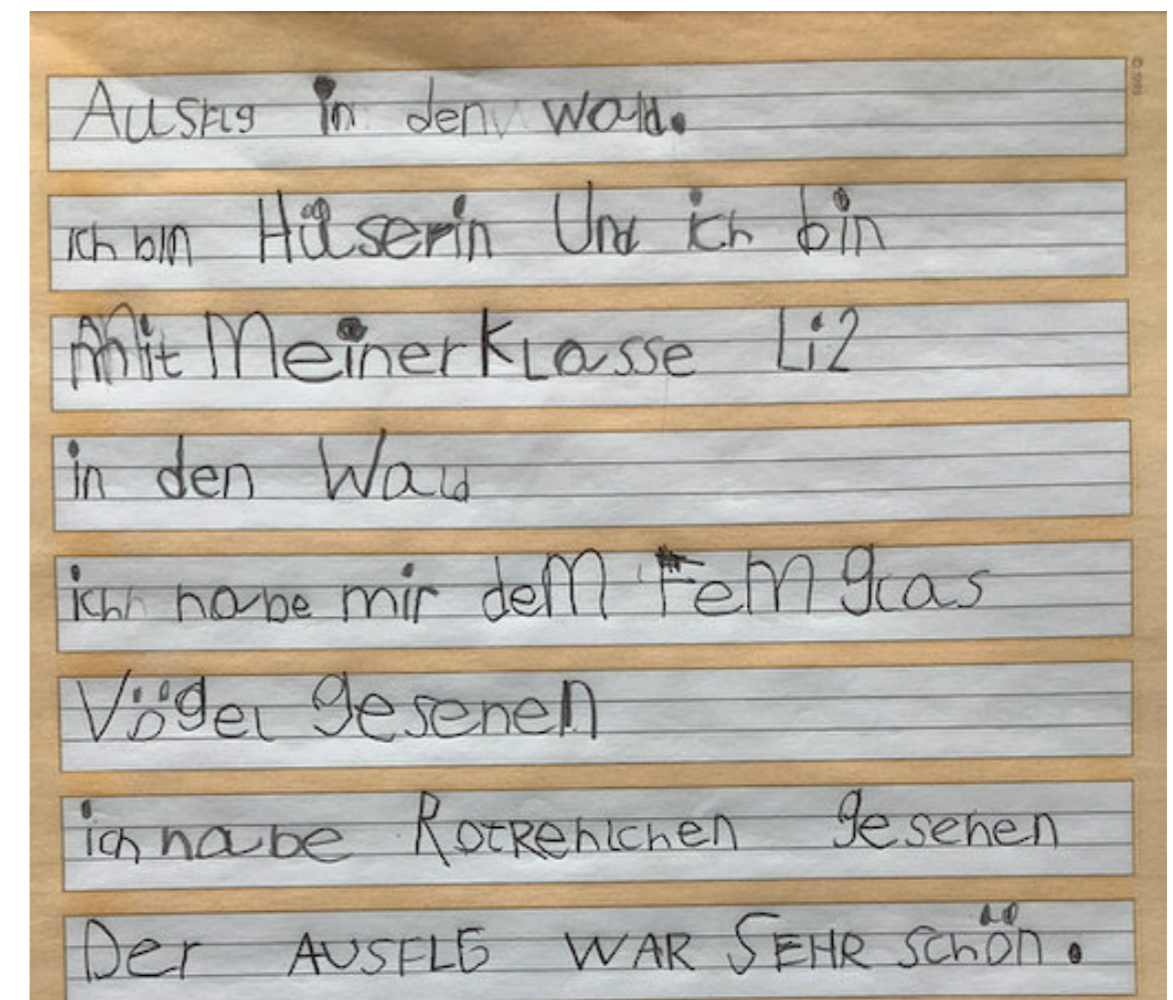 Ausflg in den wald.
ich bin Häserin Und ich bin
Mit Meiner Klasse Li2
in den Wald
ich habe mir dem FeMglas
Vögel gesehen
ich habe Rotkehlchen gesehen
Der AUSFLG WAR SEHR schön.